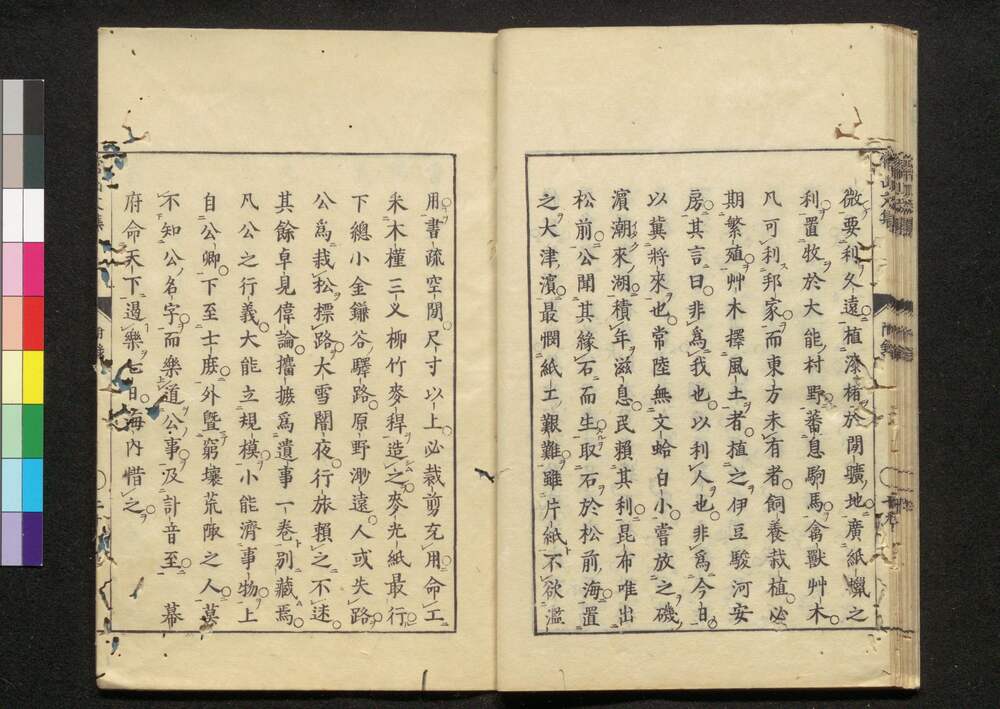 微要利久遠植漆楮於閒曠地廣紙蠟之
利置牧於大能村野蕃息駒馬禽獸艸木
凡可利邦家而東方未有者飼養栽植必
期繁殖艸木擇風土者植之伊豆駿河安
房其言曰非爲我也以利人也非爲今日
以冀將來也常陸無文蛤白小嘗放之磯
濱潮來湖積年滋息民賴其利昆布唯出
松前公聞其緣石而生取石於松前海置
之大津濱最憫紙工艱難雖片紙不欲濫
用書疏空閒尺寸以上必裁剪充用命工
采木槿三义柳竹麥稈造之麥光紙最行
下總小金鎌谷驛路原野渺遠人或失路
公爲栽松標路大雪闇夜行旅賴之不迷
其餘卓見偉論攟摭爲遺事一卷別藏焉
凡公之行義大能立規模小能濟事物上
自公卿下至士庶外曁窮壤荒陬之人莫
不知公名字而樂道公事及訃音至 幕
府命天下遏樂七日海內惜之